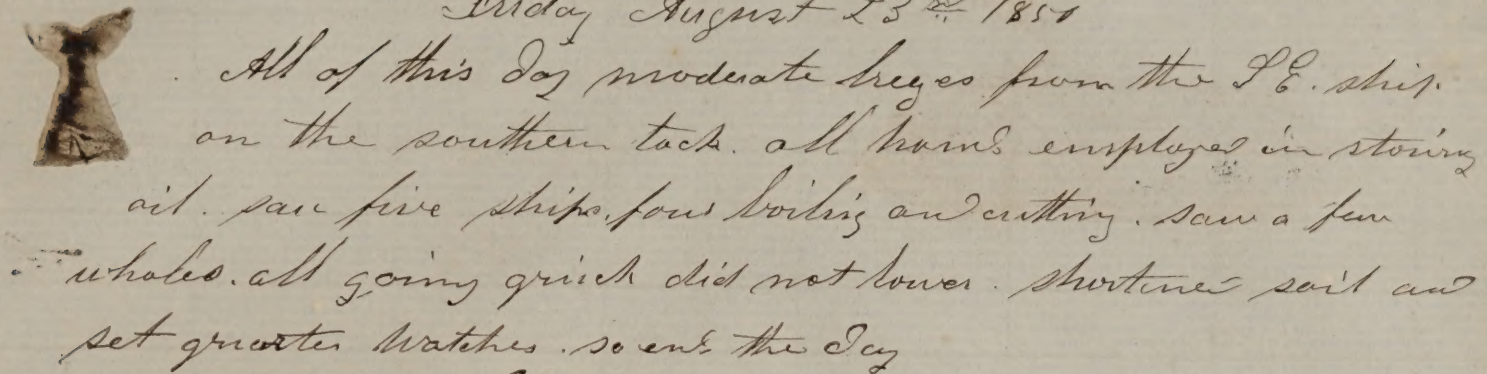 Friday August 23rd 1850
All of this day moderate breezes from the S E. ship
on the southern tack. all hands employed in stowing
oil. saw five ships, four boiling and cutting. saw a few
whales. all going quick did not lower. shortened sail and
set quarter watches. so ends the day